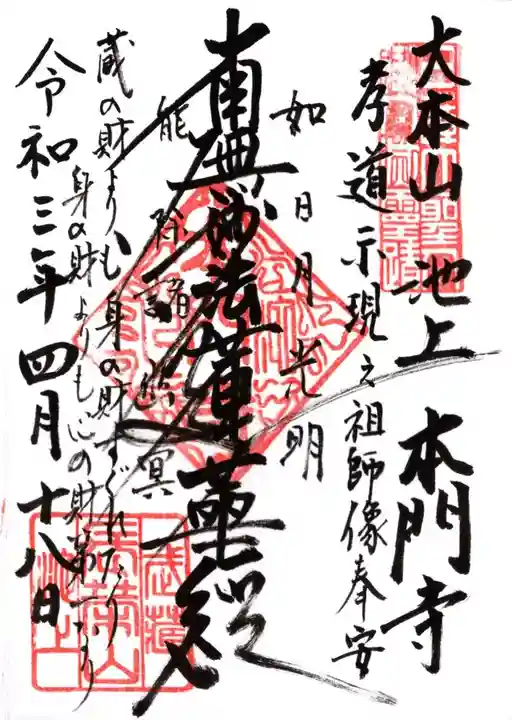 大本山 池上 本門寺
孝道示現之祖師像奉安
如日月光明
南無妙法蓮華経
能除諸幽冥
蔵の財よりも身の財すぐれたり
身の財よりも心の財第一なり
令和三年四月十八日